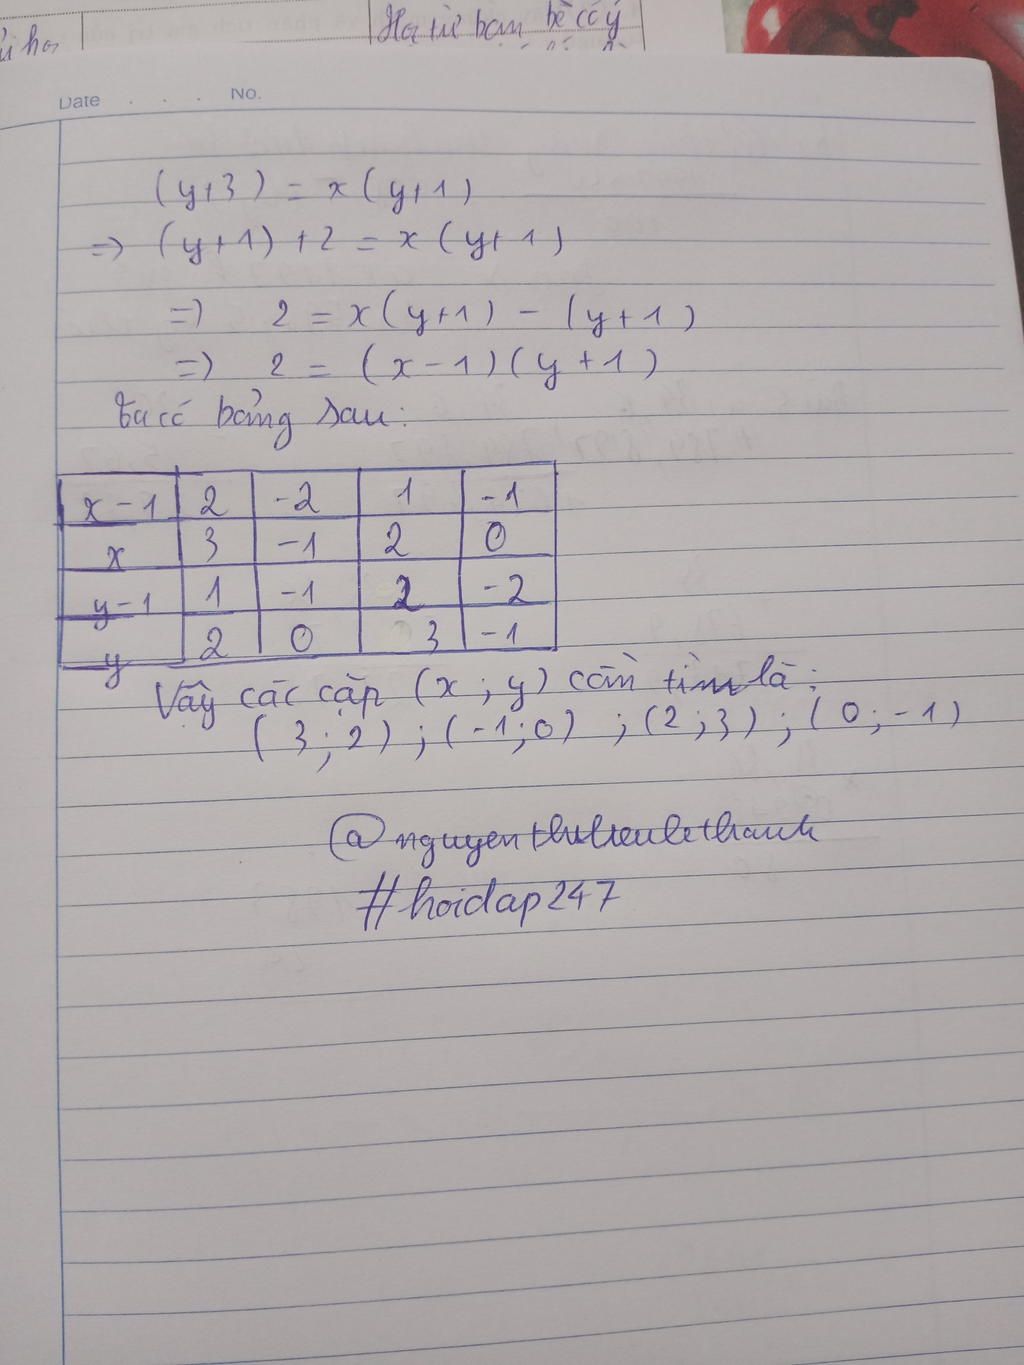 Hỏi từ bạn bè có ý
Date . . . No.
(y+3) = x(y+1)
=> (y+1)+2 = x(y+1)
=> 2 = x(y+1) - (y+1)
=> 2 = (x-1)(y+1)
Ta có bảng sau:
x-1 2 -2 1 -1
x 3 -1 2 0
y-1 1 -1 2 -2
y 2 0 3 -1
Vậy các cặp (x;y) cần tìm là:
(3;2);(-1;0);(2;3);(0;-1)
@nguyenthuhieulethanh
#hoidap247